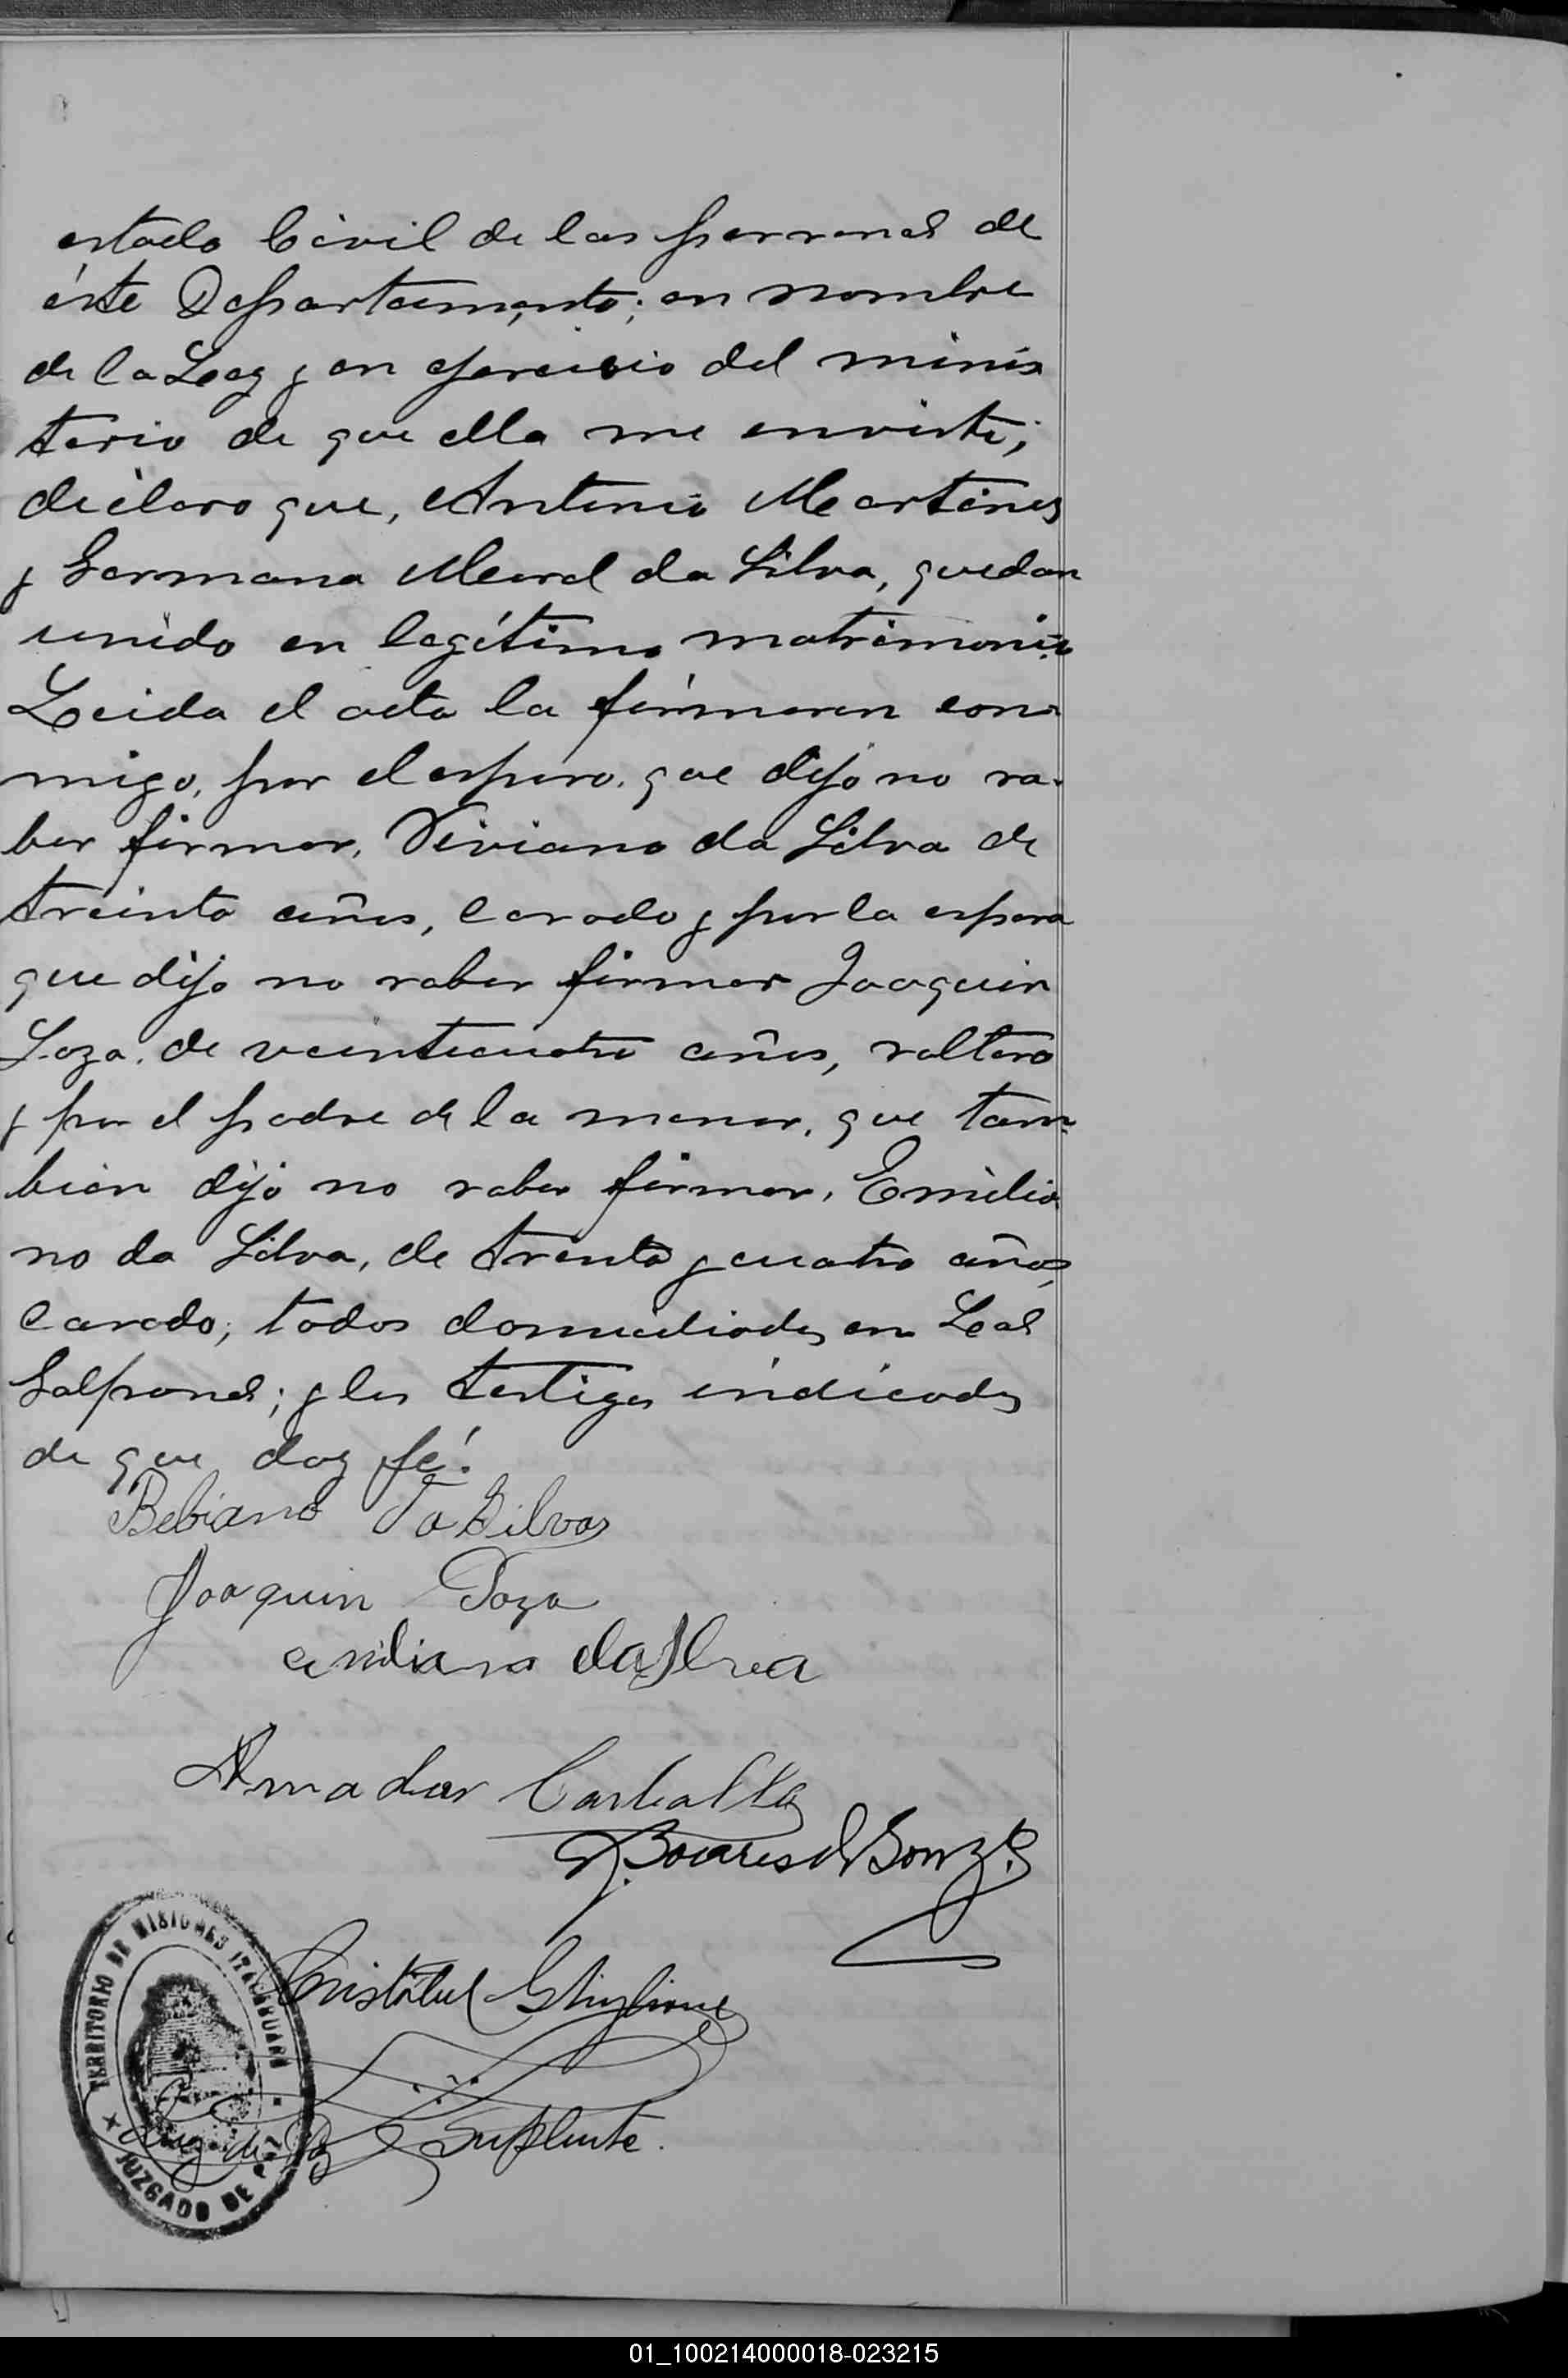 estado Civil de las personas de
éste Departamento; en nombre
de la Ley y en ejercicio del minis
terio de que ella me enviste;
declaro que, Antonio Martines
y Germana Meurel da Silva, quedan
unido en legítimo matrimonio
Leida el acta la firmaron con-
migo, por el esposo. que dijo no sa-
ber firmar, Viviano da Silva de
treinta años, casado y por la esposa
que dijo no saber firmar Joaquin
Loza. de veinticuatro años, soltero
y por el padre de la menor, que tam-
bien dijo no saber firmar, Emilia
no da Silva, de treinta y cuatro años,
casado; todos domiciliados en Las
Galpones; y los testigos indicados
de que doy fé.
Bebiano Da Silva
Joaquin Loza
emiliano da Silva
Amador Carballo
Cristóbal Ghiglione
Juez de Paz Suplente.
TERRITORIO DE MISIONES ITACARUARÉ
JUZGADO DE PAZ
01_100214000018-023215